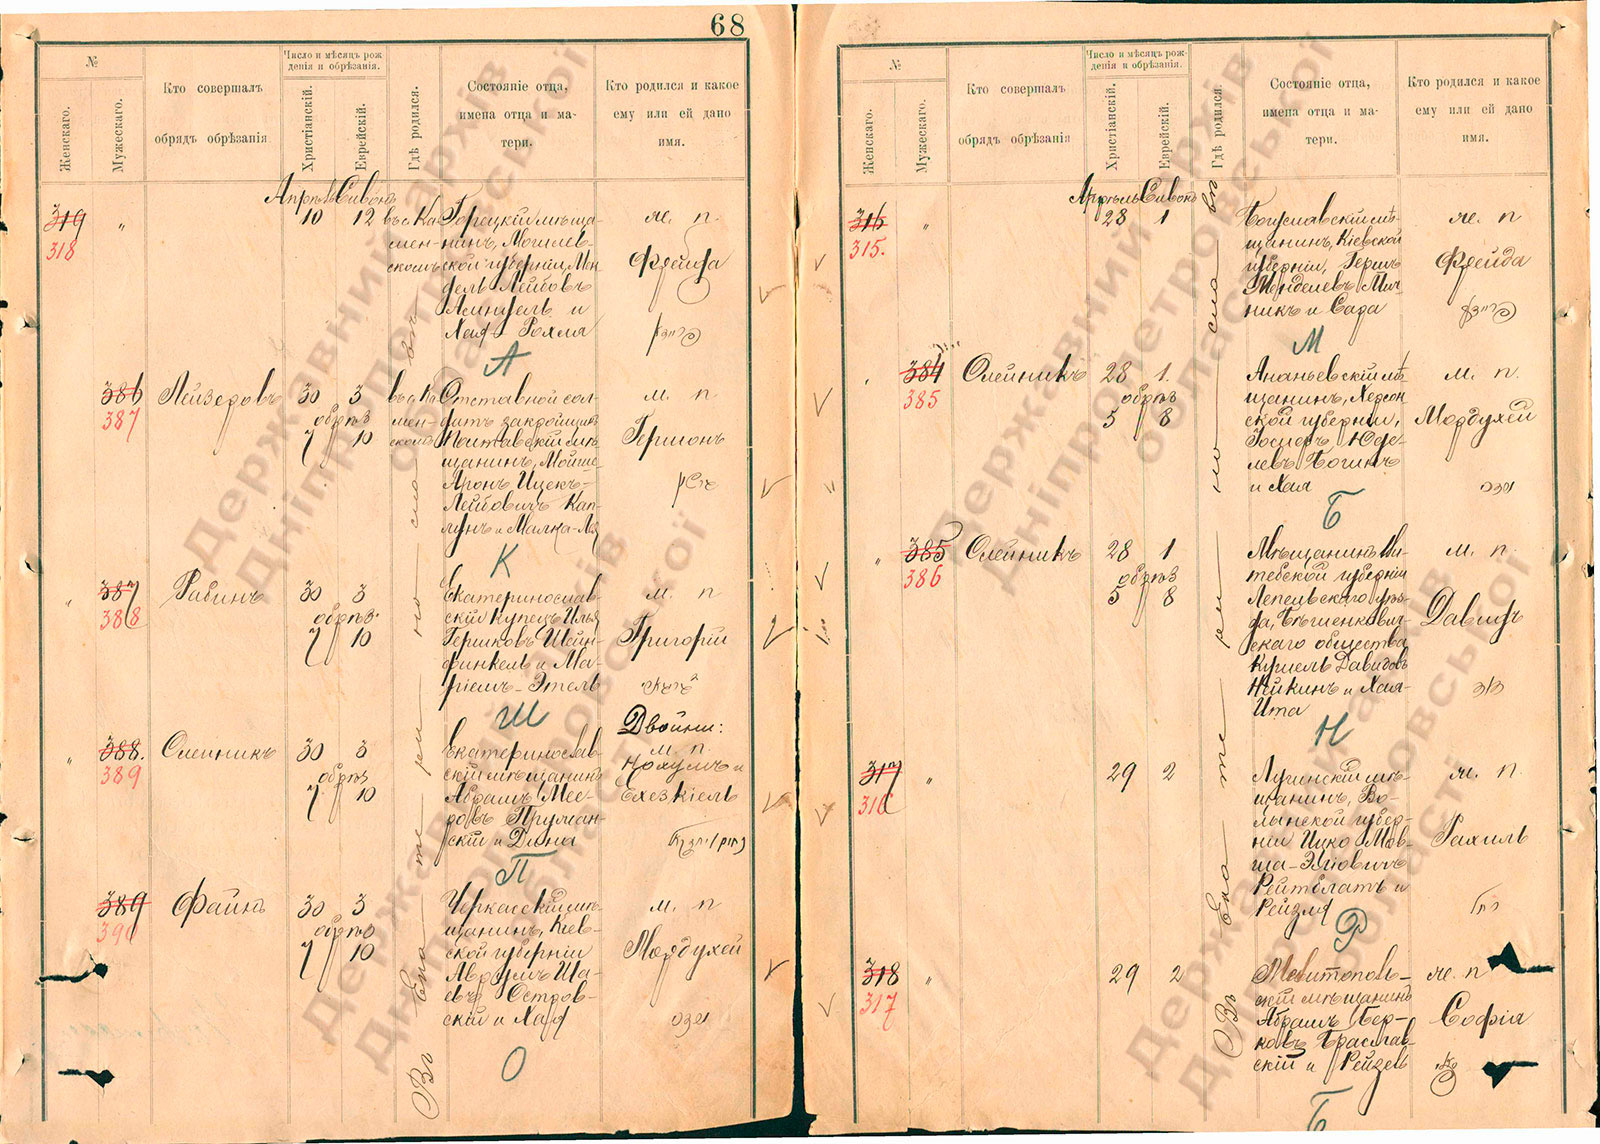 68
№
Женскаго.
Мужескаго.
Кто совершалъ
обрядъ обрѣзанія
Число и мѣсяцъ рож-
денія и обрѣзанія.
Христіанскій.
Еврейскій.
Гдѣ родился.
Состояніе отца,
имена отца и ма-
тери.
Кто родился и какое
ему или ей дано
имя.
Апрѣль Сивонъ
319
318
"
10
12
въ с Ка
менн-
скомъ
Горецкій мѣща
нинъ, Могилев-
ской губерніи, Мен
дель Лейбовъ
и
Хая-Рохля
ж. п.
Фрейда
А
386
387
Лейзеровъ
30 3
обрѣз
7 10
въ с Ка
мен-
скомъ
Отставной сол-
датъ закройщик
Полтавскій мѣ
щанинъ, Мойше
Аронъ Ицек-
Лейбовичъ Кап-
лунъ и Малка-Лея
м. п
Гершонъ
גרשון
К
387
388
Рабинъ
30 3
обрѣз.
7 10
Екатеринослав-
скій купецъ Илья
Гершковъ Шейн-
финкель и Ма-
ріемъ-Этель
м. п
Григорій
Ш
388.
389
Олейникъ
30 3
обрѣз
7 10
Екатеринослав-
скій мѣщанинъ
Абрамъ Мее-
ровъ Пруман-
скій и Дина
Двойни:
м. п
Нохумъ и
Ехезкіель
П
389
390
Файнъ
30 3
обрѣз
7 10
Черкасскій мѣ-
щанинъ, Кіев-
ской губерніи
Аврумъ Ша-
евъ Остров-
скій и Хая
м. п
Мордухей
מרדכי
О
Въ Ека те ри но сла въ
№
Женскаго.
Мужескаго.
Кто совершалъ
обрядъ обрѣзанія
Число и мѣсяцъ рож-
денія и обрѣзанія.
Христіанскій.
Еврейскій.
Гдѣ родился.
Состояніе отца,
имена отца и ма-
тери.
Кто родился и какое
ему или ей дано
имя.
Апрѣль Сивонъ
316
315.
"
28
1
Богуславскій мѣ-
щанинъ, Кіевской
губерніи, Герш
Менделевъ Миль-
никъ и Сара
ж. п
Фрейда
פריידא
М
384
385
Олейникъ
28 1.
обрѣз
5 8
Ананьевскій мѣ
щанинъ, Херсон
ской губерніи,
Іосифъ Юде-
левъ Богинъ
и Хая
м. п.
Мордухей
מרדכי
Б
385
386
Олейникъ
28 1
обрѣз
5 8
Мѣщанинъ Ви-
тебской губерніи
Лепельскаго уѣз-
да, Бѣшенкович-
скаго общества
Кушель Давидовъ
Нейкинъ и Хая-
Ита
м. п.
Давидъ
דוד
Н
317
316
"
29 2
Лугинскій мѣ-
щанинъ, Во-
лынской губер-
ніи Ицко Мов-
ша-Эліовичъ
Рейтблатъ и
Рейзля
ж. п.
Рахиль
רחל
Р
318
317
"
29 2
Мелитополь-
скій мѣщанинъ
Абрамъ Бер-
ковъ Браслав-
скій и Рейзель
ж. п
Софія
Б
Въ Ека те ри но сла въ
Державний архів
Дніпропетровської
області